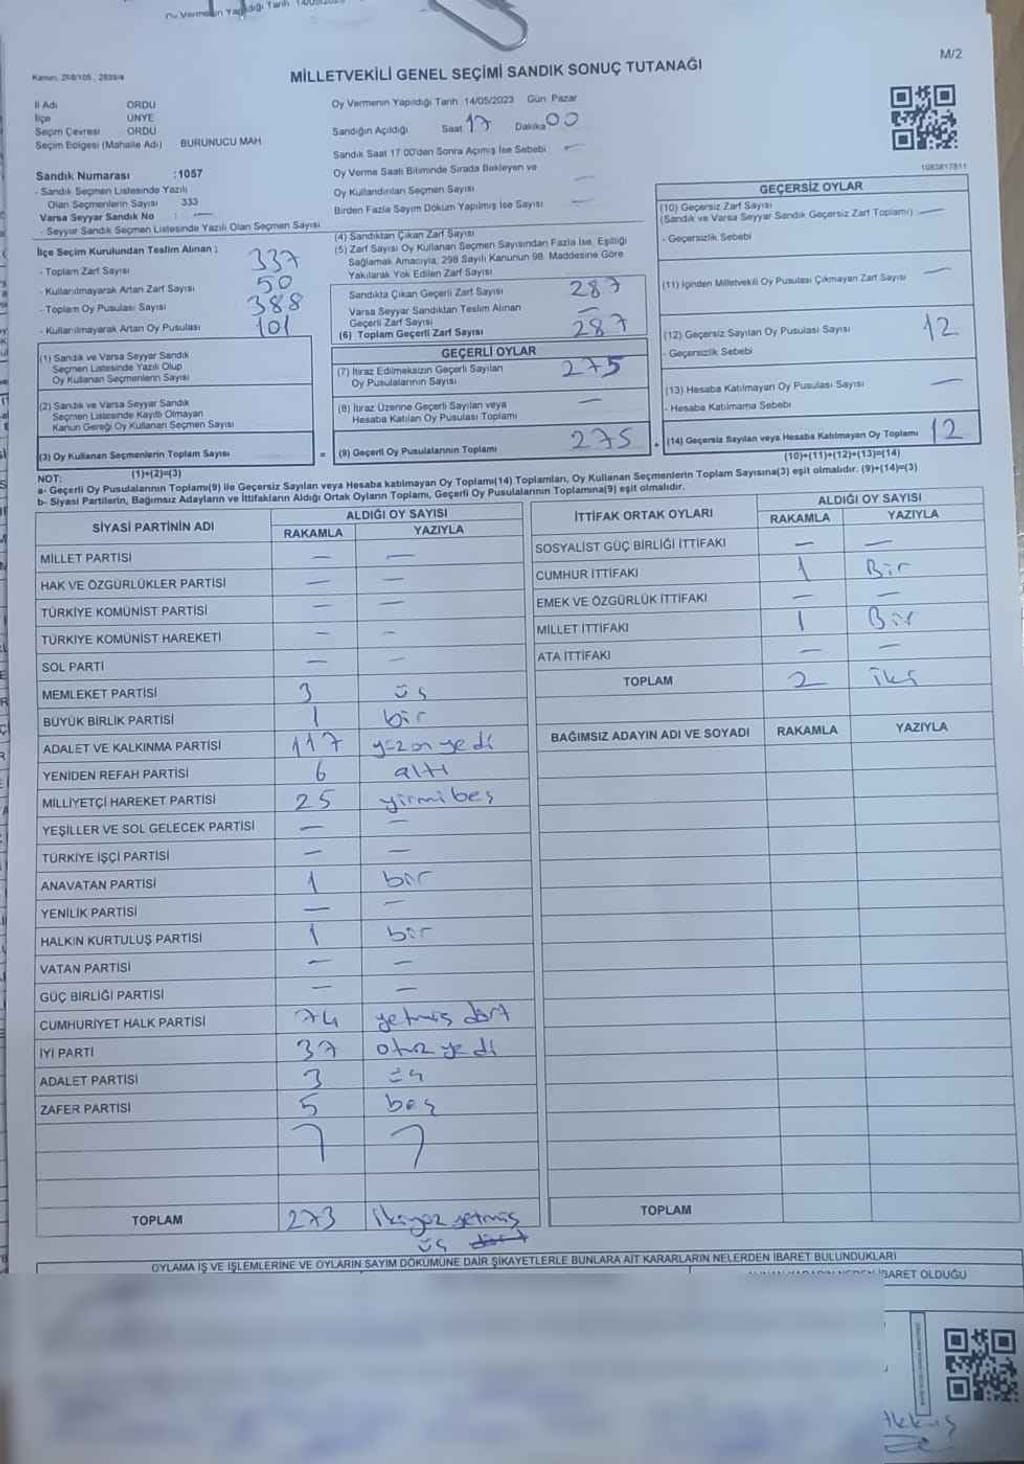 Oy Vermenin Yapıldığı Tarih 14/05/2023
M/2
MİLLETVEKİLİ GENEL SEÇİMİ SANDIK SONUÇ TUTANAĞI
İl Adı ORDU
İlçe ÜNYE
Seçim Çevresi ORDU
Seçim Bölgesi (Mahalle Adı) BURUNUCU MAH
Sandık Numarası :1057
- Sandık Seçmen Listesinde Yazılı
Olan Seçmenlerin Sayısı 333
Varsa Seyyar Sandık No : —
- Seyyar Sandık Seçmen Listesinde Yazılı Olan Seçmen Sayısı
Oy Vermenin Yapıldığı Tarih 14/05/2023 Gün Pazar
Sandığın Açıldığı Saat 17 Dakika 00
Sandık Saat 17 00'den Sonra Açılmış İse Sebebi —
Oy Verme Saati Bitiminde Sırada Bekleyen ve
Oy Kullandırılan Seçmen Sayısı —
Birden Fazla Sayım Döküm Yapılmış İse Sayısı —
1083817811
İlçe Seçim Kurulundan Teslim Alınan ;
- Toplam Zarf Sayısı 337
- Kullanılmayarak Artan Zarf Sayısı 50
- Toplam Oy Pusulası Sayısı 388
- Kullanılmayarak Artan Oy Pusulası 101
(1) Sandık ve Varsa Seyyar Sandık
Seçmen Listesinde Yazılı Olup
Oy Kullanan Seçmenlerin Sayısı
(2) Sandık ve Varsa Seyyar Sandık
Seçmen Listesinde Kayıtlı Olmayan
Kanun Gereği Oy Kullanan Seçmen Sayısı
(3) Oy Kullanan Seçmenlerin Toplam Sayısı
(1)+(2)=(3)
(4) Sandıktan Çıkan Zarf Sayısı
(5) Zarf Sayısı Oy Kullanan Seçmen Sayısından Fazla İse, Eşitliği
Sağlamak Amacıyla, 298 Sayılı Kanunun 98. Maddesine Göre
Yakılarak Yok Edilen Zarf Sayısı
Sandıkta Çıkan Geçerli Zarf Sayısı 287
Varsa Seyyar Sandıktan Teslim Alınan
Geçerli Zarf Sayısı —
(6) Toplam Geçerli Zarf Sayısı 287
GEÇERLİ OYLAR
(7) İtiraz Edilmeksizin Geçerli Sayılan
Oy Pusulalarının Sayısı 275
(8) İtiraz Üzerine Geçerli Sayılan veya
Hesaba Katılan Oy Pusulası Toplamı —
= (9) Geçerli Oy Pusulalarının Toplamı 275
GEÇERSİZ OYLAR
(10) Geçersiz Zarf Sayısı
(Sandık ve Varsa Seyyar Sandık Geçersiz Zarf Toplamı) —
- Geçersizlik Sebebi
(11) İçinden Milletvekili Oy Pusulası Çıkmayan Zarf Sayısı —
(12) Geçersiz Sayılan Oy Pusulası Sayısı 12
- Geçersizlik Sebebi
(13) Hesaba Katılmayan Oy Pusulası Sayısı —
- Hesaba Katılmama Sebebi
+ (14) Geçersiz Sayılan veya Hesaba Katılmayan Oy Toplamı 12
(10)+(11)+(12)+(13)=(14)
NOT:
a- Geçerli Oy Pusulalarının Toplamı(9) ile Geçersiz Sayılan veya Hesaba katılmayan Oy Toplamı(14) Toplamları, Oy Kullanan Seçmenlerin Toplam Sayısına(3) eşit olmalıdır. (9)+(14)=(3)
b- Siyasi Partilerin, Bağımsız Adayların ve İttifakların Aldığı Ortak Oyların Toplamı, Geçerli Oy Pusulalarının Toplamına(9) eşit olmalıdır.
SİYASİ PARTİNİN ADI ALDIĞI OY SAYISI
RAKAMLA YAZIYLA
MİLLET PARTİSİ — —
HAK VE ÖZGÜRLÜKLER PARTİSİ — —
TÜRKİYE KOMÜNİST PARTİSİ — —
TÜRKİYE KOMÜNİST HAREKETİ — —
SOL PARTİ — —
MEMLEKET PARTİSİ 3 üç
BÜYÜK BİRLİK PARTİSİ 1 bir
ADALET VE KALKINMA PARTİSİ 117 yüzonyedi
YENİDEN REFAH PARTİSİ 6 altı
MİLLİYETÇİ HAREKET PARTİSİ 25 yirmibeş
YEŞİLLER VE SOL GELECEK PARTİSİ — —
TÜRKİYE İŞÇİ PARTİSİ — —
ANAVATAN PARTİSİ 1 bir
YENİLİK PARTİSİ — —
HALKIN KURTULUŞ PARTİSİ 1 bir
VATAN PARTİSİ — —
GÜÇ BİRLİĞİ PARTİSİ — —
CUMHURİYET HALK PARTİSİ 74 yetmiş dört
İYİ PARTİ 37 otuz yedi
ADALET PARTİSİ 3 üç
ZAFER PARTİSİ 5 beş
TOPLAM 273 ikiyüz yetmiş
üç dört
İTTİFAK ORTAK OYLARI ALDIĞI OY SAYISI
RAKAMLA YAZIYLA
SOSYALİST GÜÇ BİRLİĞİ İTTİFAKI — —
CUMHUR İTTİFAKI 1 Bir
EMEK VE ÖZGÜRLÜK İTTİFAKI — —
MİLLET İTTİFAKI 1 Bir
ATA İTTİFAKI — —
TOPLAM 2 iki
BAĞIMSIZ ADAYIN ADI VE SOYADI RAKAMLA YAZIYLA
TOPLAM
OYLAMA İŞ VE İŞLEMLERİNE VE OYLARIN SAYIM DÖKÜMÜNE DAİR ŞİKAYETLERLE BUNLARA AİT KARARLARIN NELERDEN İBARET BULUNDUKLARI
İBARET OLDUĞU